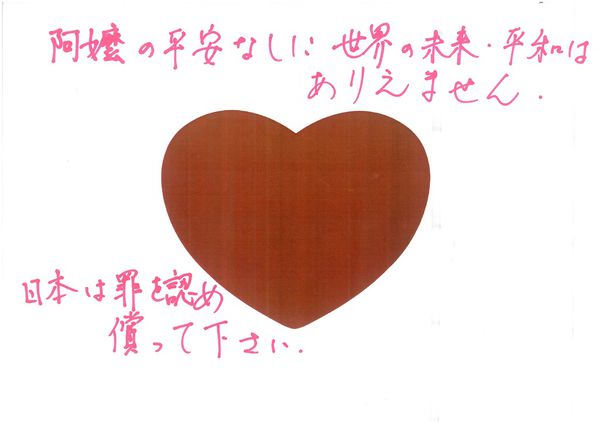 阿嬤の平安なしに世界の未来・平和は
ありえません.
日本は罪を認め
償って下さい.